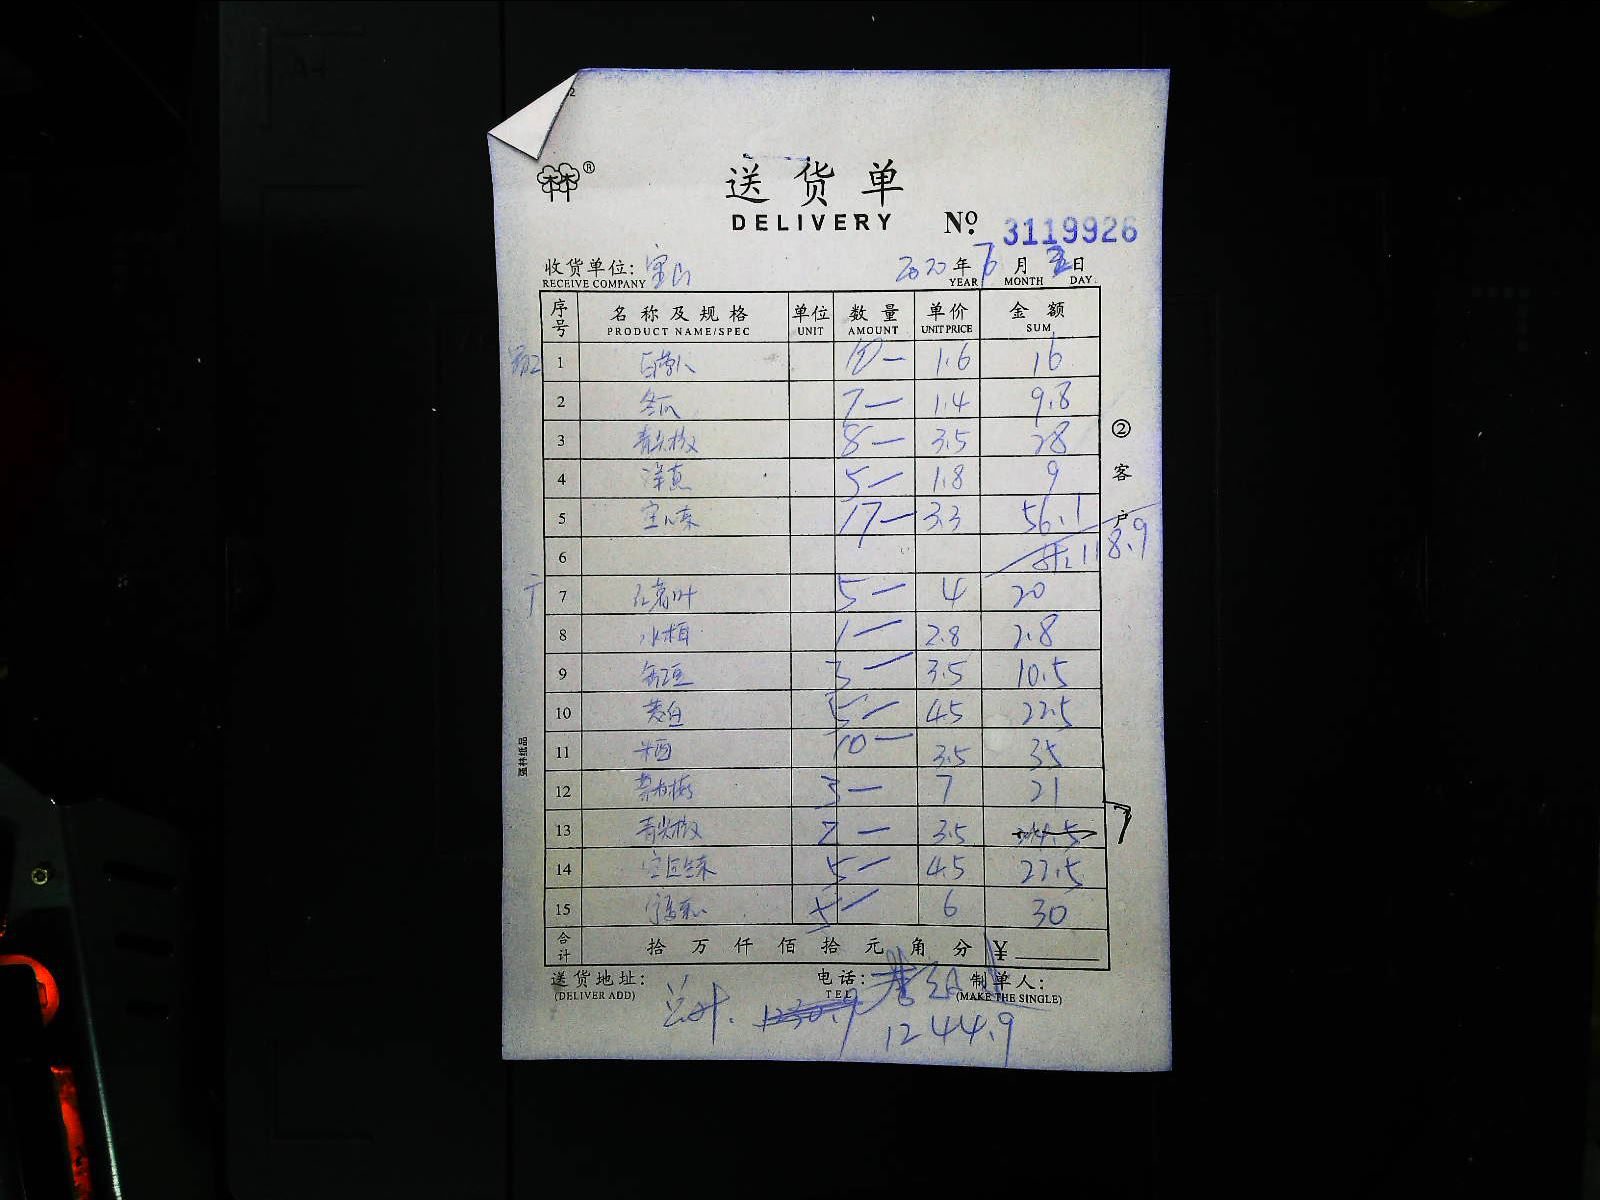 送货单
DELIVERY № 3119926
收货单位: 宝山 2020年 6月 日
RECEIVE COMPANY YEAR MONTH DAY.
序号 名称及规格 单位 数量 单价 金额
PRODUCT NAME/SPEC UNIT AMOUNT UNIT PRICE SUM
1 10— 1.6 16
2 冬瓜 7— 1.4 9.8
3 青尖椒 8— 3.5 28
4 洋葱 5— 1.8 9
5 17— 3.3 56.1
6 共118.9
7 5— 4 20
8 1— 2.8 2.8
9 3— 3.5 10.5
10 5— 4.5 22.5
11 米酒 10— 3.5 35
12 3— 7 21
13 青尖椒 2— 3.5 7
14 5— 4.5 22.5
15 5— 6 30
合计 拾 万 仟 佰 拾 元 角 分 ¥
送货地址: 电话: 制单人:
(DELIVER ADD) TEL (MAKE THE SINGLE)
总计. 1230.9 1244.9
② 客户
强林纸品